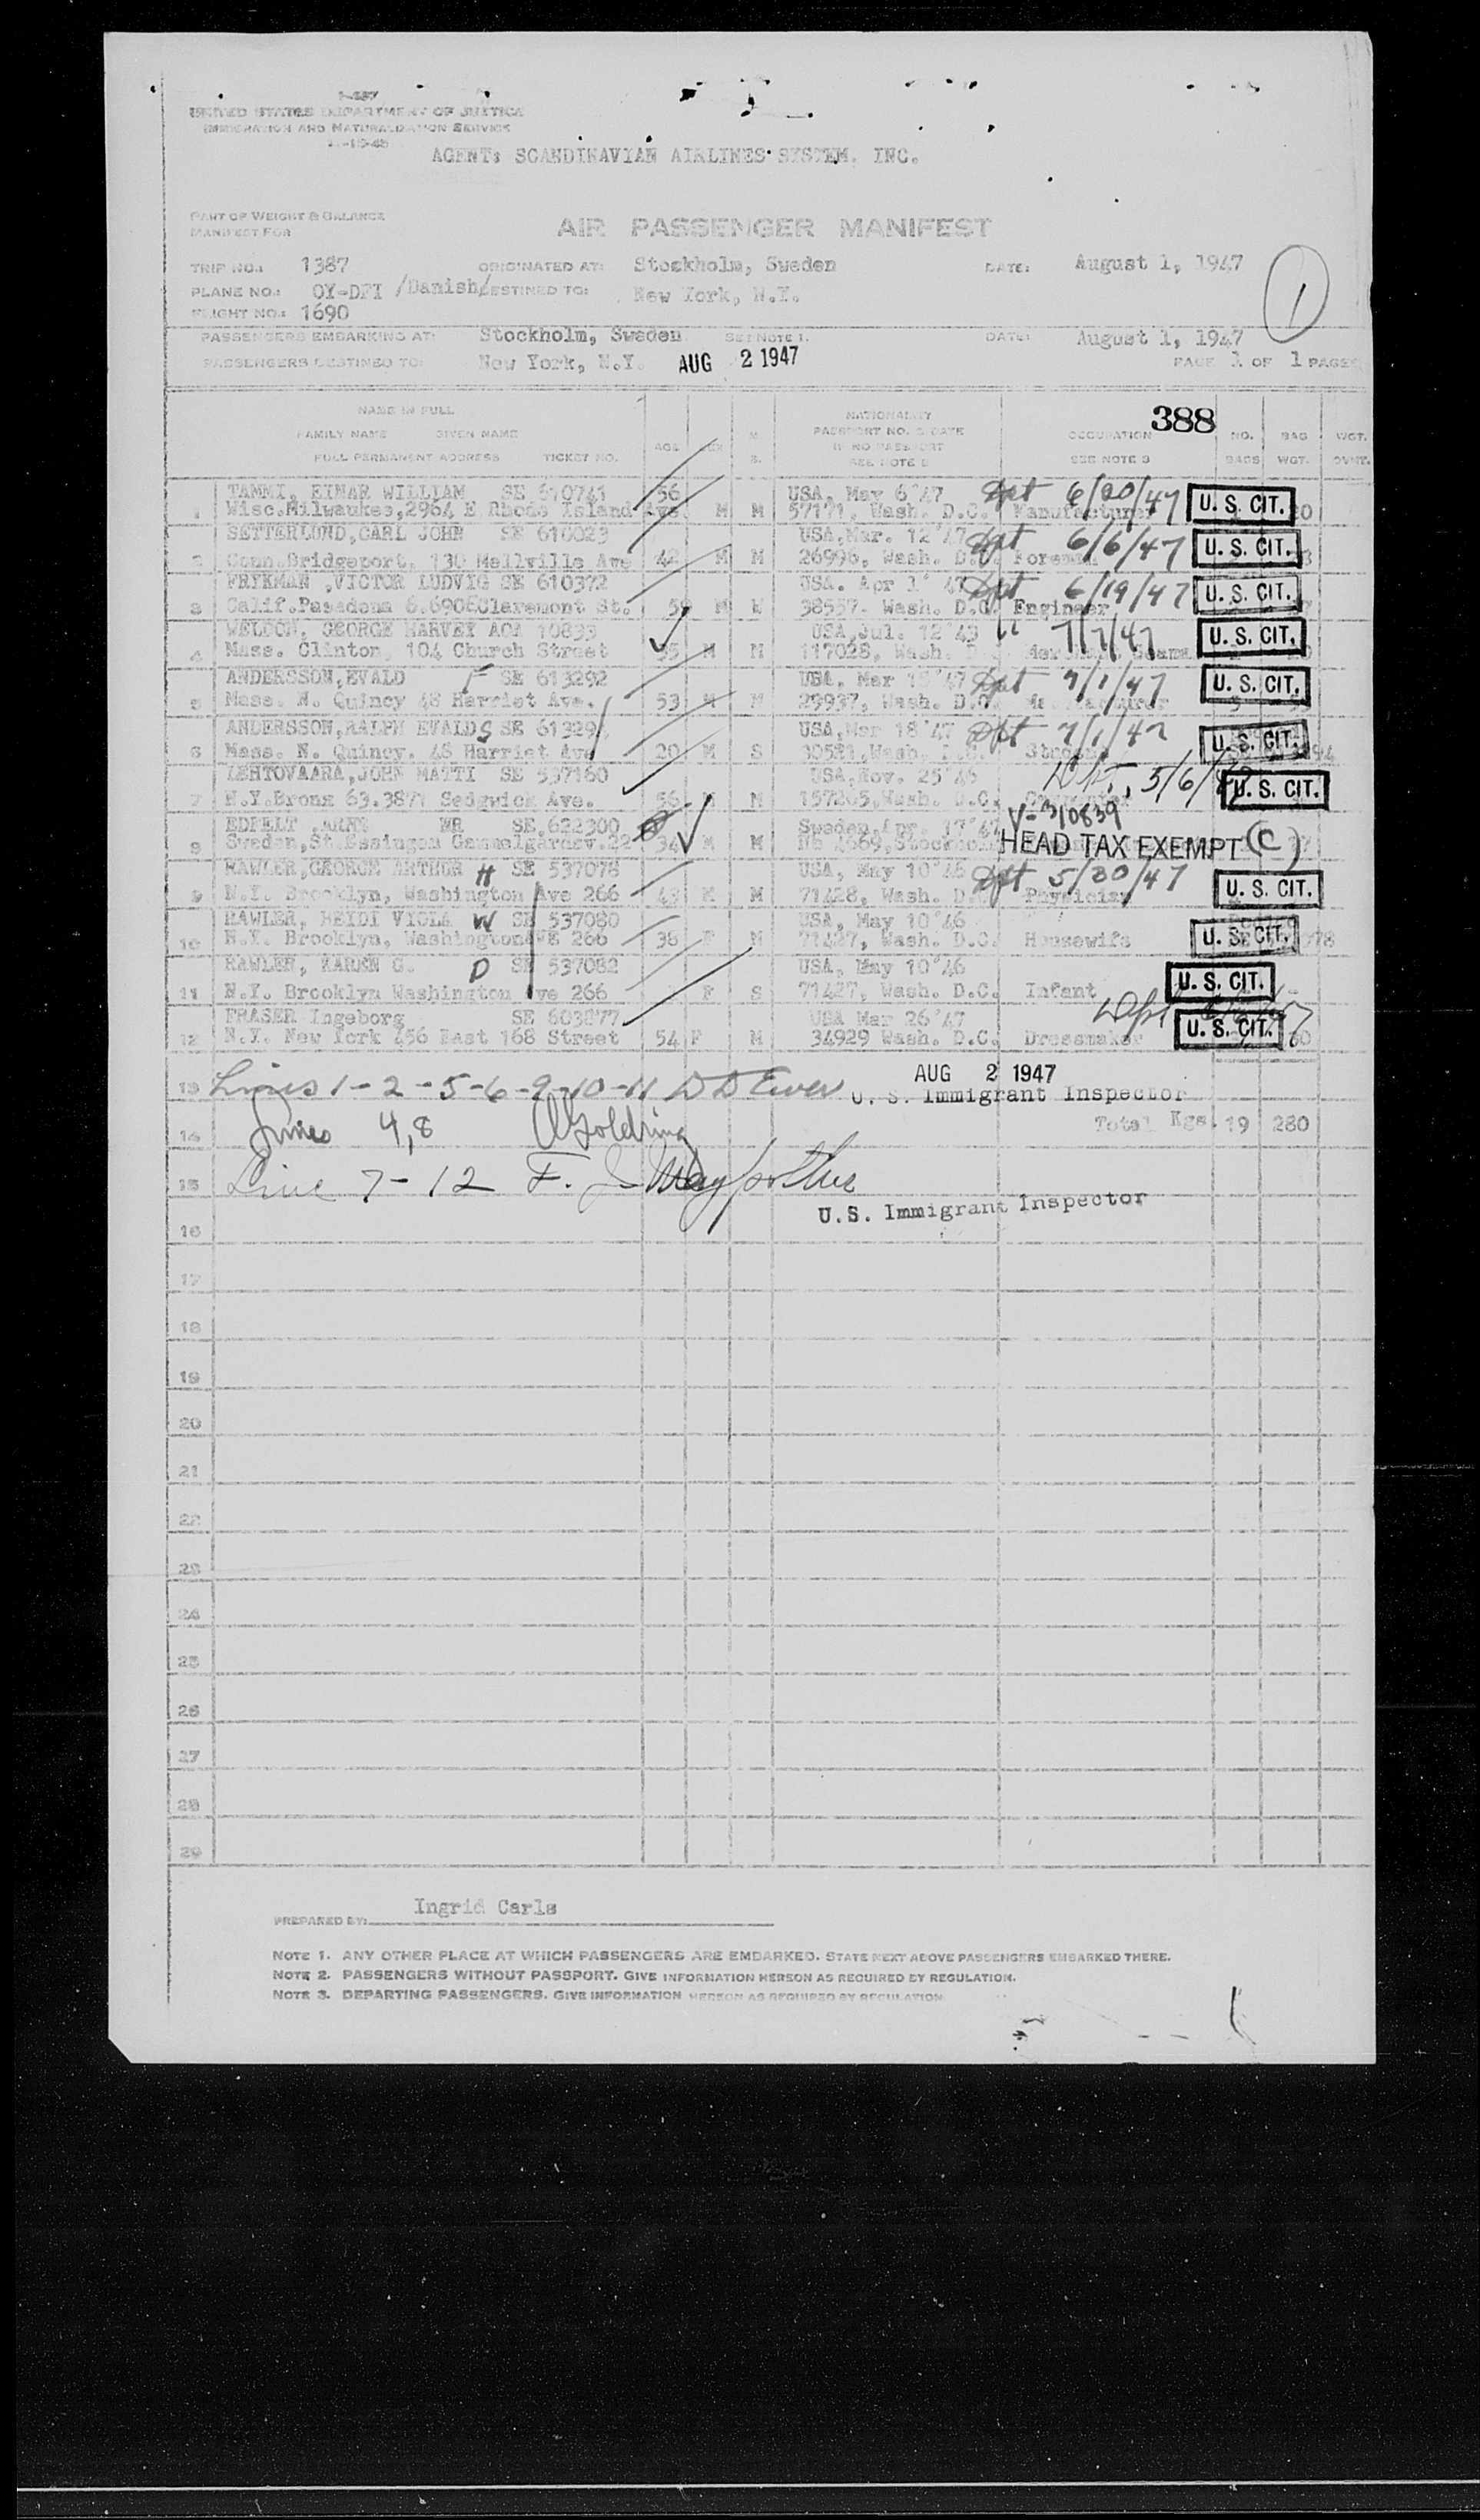 I-487
UNITED STATES DEPARTMENT OF JUSTICE
IMMIGRATION AND NATURALIZATION SERVICE
AGENT: SCANDINAVIAN AIRLINES SYSTEM. INC.
PART OF WEIGHT & BALANCE
MANIFEST FOR
AIR PASSENGER MANIFEST
TRIP NO.: 1387 ORIGINATED AT: Stockholm, Sweden DATE: August 1, 1947
PLANE NO.: /Danish/ DESTINED TO: New York, N.Y.
1
FLIGHT NO.: 1690
PASSENGERS EMBARKING AT: Stockholm, Sweden SEE NOTE 1. DATE: August 1, 1947
PASSENGERS DESTINED TO: New York, N.Y. AUG 2 1947 PAGE 1 OF 1 PAGES
388
NAME IN FULL
FAMILY NAME GIVEN NAME
FULL PERMANENT ADDRESS TICKET NO.
AGE SEX M S.
NATIONALITY
PASSPORT NO. & DATE
IF NO PASSPORT
SEE NOTE 2
OCCUPATION
SEE NOTE 3
NO. BAGS BAG WGT. WGT. OVWT.
TAMMI, EINAR WILLIAM SE 610741 56 USA, May 6'47 Dpt 6/20/47 U. S. CIT.
1 Wisc.Milwaukee,2964 E Rhode Island Ave M M 57171, Wash. D.C. Manufacturer
SETTERLUND,CARL JOHN SE 610023 USA,Mar. 12'47 Dpt 6/6/47 U. S. CIT.
2 Conn.Bridgeport. 130 Mellville Ave 42 M M 26996, Wash. D.C. Foreman
WRYKMAN ,VICTOR LUDVIG SE 610372 USA. Apr 1' 47 Dpt 6/19/47 U. S. CIT.
3 Calif.Pasadena 6.690 Claremont St. 59 M 38557. Wash. D.C. Engineer
WELDON, GEORGE HARVEY AOA 10833 USA,Jul. 12'43 " 7/7/47 U. S. CIT.
4 Mass. Clinton, 104 Church Street 35 M M 117028, Wash. D.C.
ANDERSSON,EVALD F SE 613292 USA. Mar 18'47 Dpt 7/1/47 U. S. CIT.
5 Mass. N. Quincy 48 Harriet Ave. 53 M M 29937, Wash. D.C. Manufacturer
ANDERSSON,RALPH EVALD S SE 61329 USA,Mar 18'47 Dpt 7/1/47 U. S. CIT.
6 Mass. N. Quincy. 48 Harriet Ave 20 M S 30581,Wash. D.C. Student
LEHTOVAARA,JOHN MATTI SE 537160 USA,Nov. 25'46 Dpt., 5/6/47 U. S. CIT.
7 N.Y.Bronx 63.3871 Sedgwick Ave. 56 M M 157265,Wash. D.C. Carpenter
EDFELT ,ARNE MR SE.622300 Sweden,Apr. 17'47 V-310839
8 Sweden,St.Essingen Gammelgardsv.22 34 M M No 4669,Stockholm HEAD TAX EXEMPT (C)
RAWLER,GEORGE ARTHUR H SE 537078 USA, May 10'46 Dpt 5/30/47 U. S. CIT.
9 N.Y. Brooklyn, Washington Ave 266 43 M M 71428, Wash. D.C. Physician
RAWLER, HEIDI VIOLA W SE 537080 USA, May 10'46 U. S. CIT.
10 N.Y. Brooklyn, Washington AVE 266 38 F M 71427, Wash. D.C. Housewife
RAWLER, KAREN G. D SE 537082 USA, May 10'46 U. S. CIT.
11 N.Y. Brooklyn Washington Ave 266 F S 71427, Wash. D.C. Infant
FRASER Ingeborg SE 603877 USA Mar 26'47 Dpt U. S. CIT.
12 N.Y. New York 456 East 168 Street 54 F M 34929 Wash. D.C. Dressmaker
AUG 2 1947
13 Lines 1-2-5-6-9-10-11 D D Ewen U. S. Immigrant Inspector
14 Lines 4,8 Goldring Total Kgs. 19 280
15 Line 7-12 F. J. Maypother
U.S. Immigrant Inspector
16
17
18
19
20
21
22
23
24
25
26
27
28
29
PREPARED BY: Ingrid Carls
NOTE 1. ANY OTHER PLACE AT WHICH PASSENGERS ARE EMBARKED. STATE NEXT ABOVE PASSENGERS EMBARKED THERE.
NOTE 2. PASSENGERS WITHOUT PASSPORT. GIVE INFORMATION HEREON AS REQUIRED BY REGULATION.
NOTE 3. DEPARTING PASSENGERS. GIVE INFORMATION HEREON AS REQUIRED BY REGULATION.